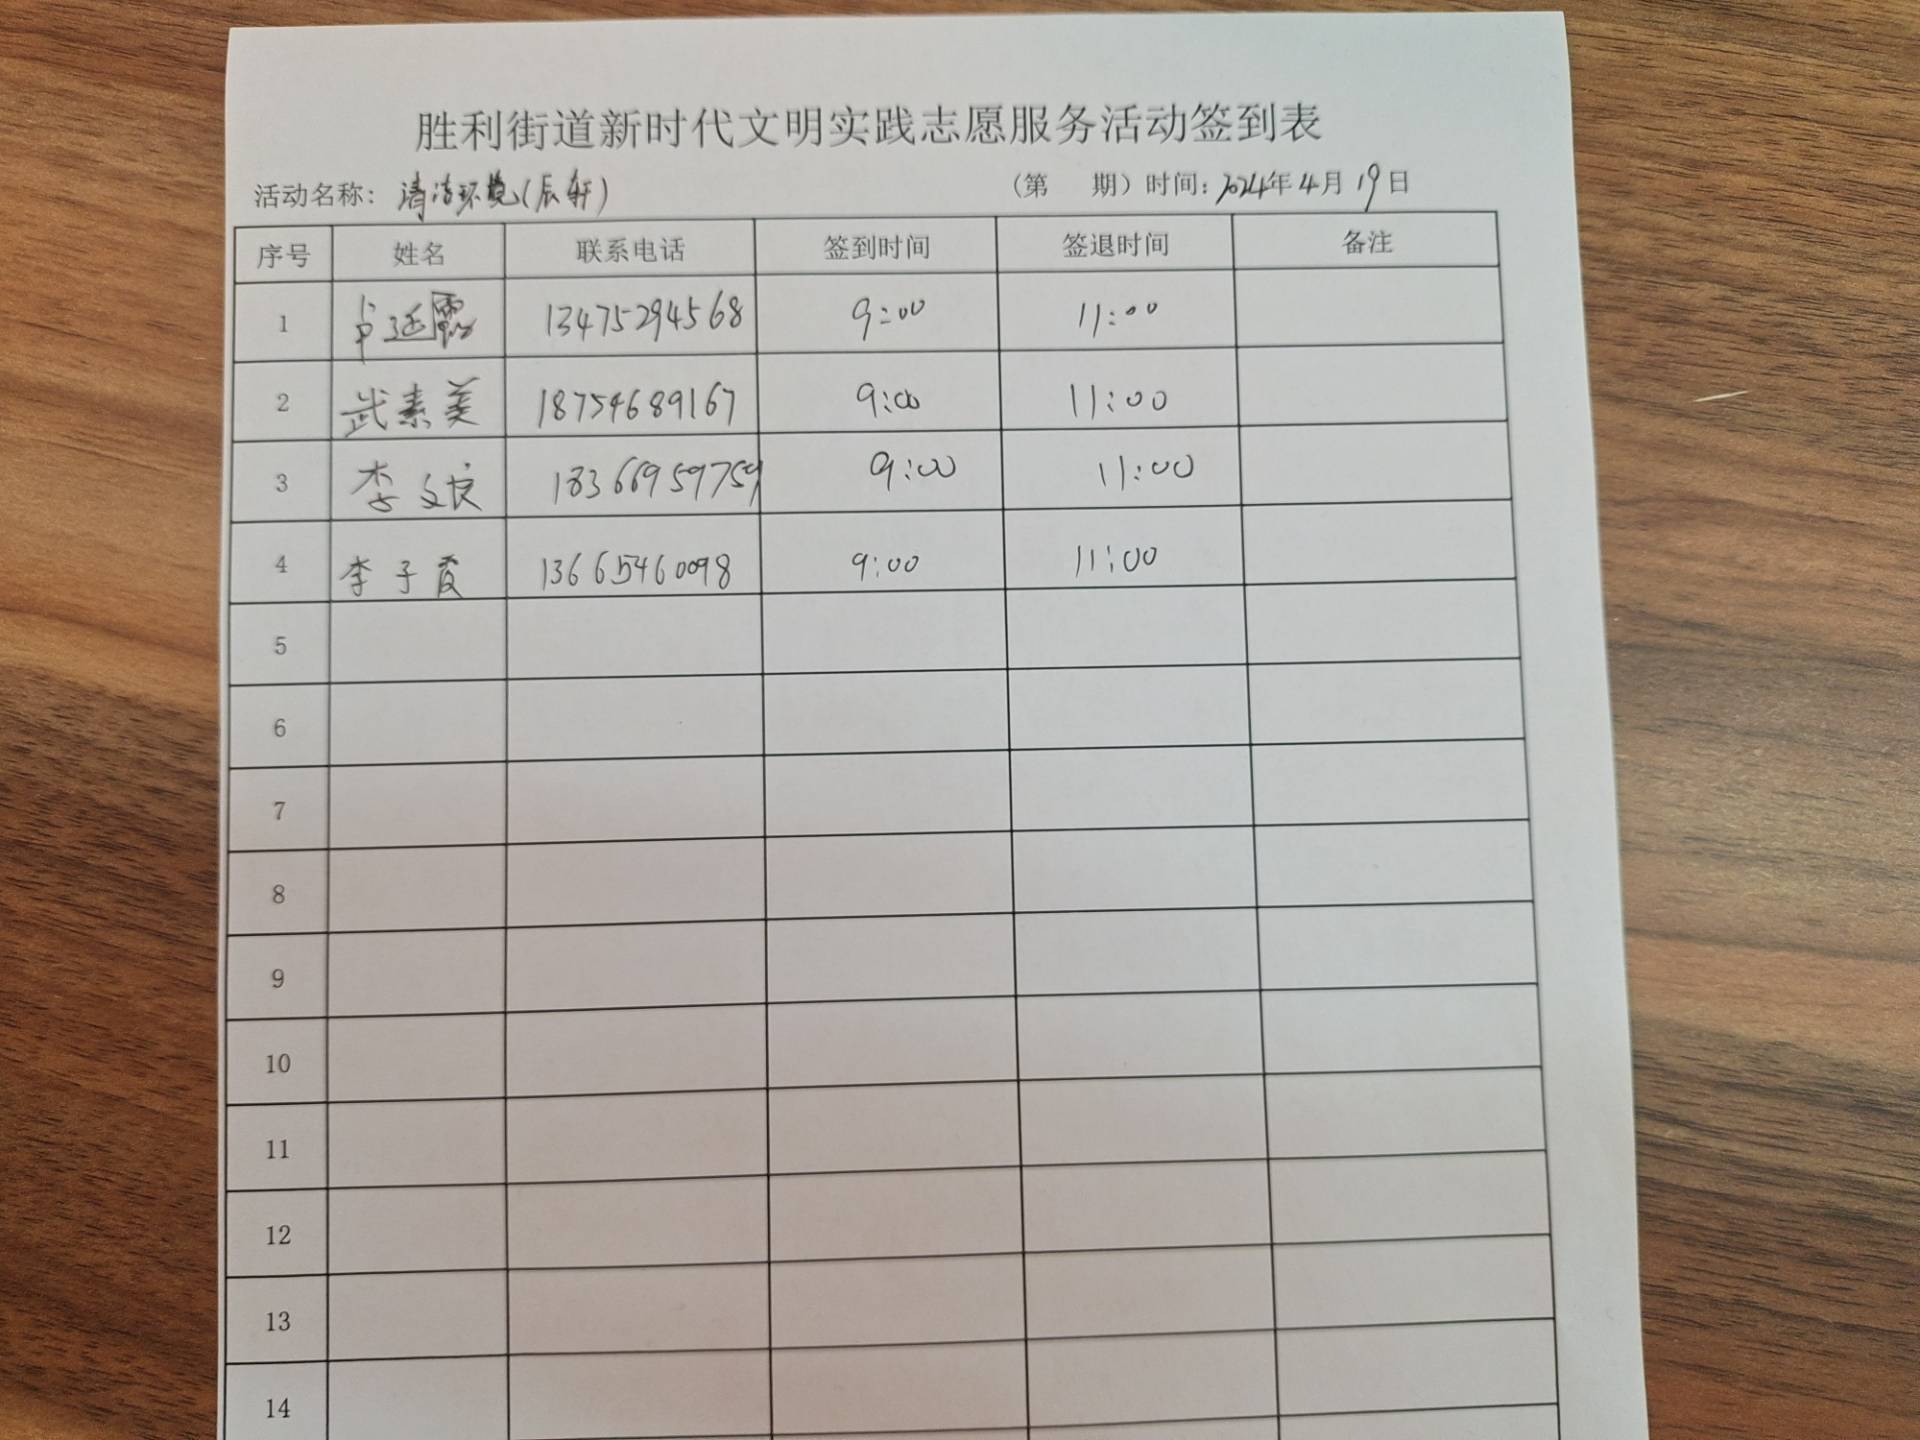 胜利街道新时代文明实践志愿服务活动签到表
活动名称：清洁环境(辰轩) (第 期) 时间：2024年4月19日
序号 姓名 联系电话 签到时间 签退时间 备注
1 卢延霞 13475294568 9:00 11:00
2 武素美 18754689167 9:00 11:00
3 李文良 18366959759 9:00 11:00
4 李子霞 13665460098 9:00 11:00
5
6
7
8
9
10
11
12
13
14